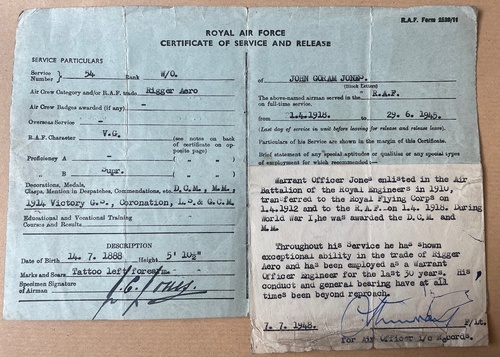 R.A.F. Form 2520/11
ROYAL AIR FORCE
CERTIFICATE OF SERVICE AND RELEASE
SERVICE PARTICULARS
Service Number } 54 Rank W/O.
Air Crew Category and/or R.A.F. trade. Rigger Aero
Air Crew Badges awarded (if any) -
Overseas Service -
R.A.F. Character V.G. (see notes on back of certificate on opposite page)
Proficiency A -
" B Supr.
Decorations, Medals, D.C.M., M.M.,
Clasps, Mention in Despatches, Commendations, etc.
1914 Victory G.S., Coronation, L.S & G.C.M
Educational and Vocational Training
Courses and Results
DESCRIPTION
Date of Birth 14. 7. 1888 Height 5' 10½"
Marks and Scars Tattoo left forearm
Specimen Signature of Airman
of JOHN GORAM JONES.
(Block Letters)
The above-named airman served in the R.A.F.
on full-time service,
from 1.4.1918. to 29. 6. 1945.
(Last day of service in unit before leaving for release and release leave).
Particulars of his Service are shown in the margin of this Certificate.
Brief statement of any special aptitudes or qualities or any special types
of employment for which recommended:-
Warrant Officer Jones enlisted in the Air
Battalion of the Royal Engineers in 1910,
transferred to the Royal Flying Corps on
1.4.1912 and to the R.A.F. on 1.4.1918. During
World War I, he was awarded the D.C.M and
M.M.
Throughout his Service he has shown
exceptional ability in the trade of Rigger
Aero and has been employed as a Warrant
Officer Engineer for the last 30 years. His
conduct and general bearing have at all
times been beyond reproach.
7. 7. 1948. F/Lt.
for Air Officer i/c Records.